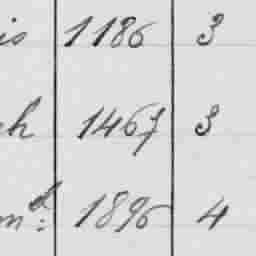 is 1186 3
ch 1467 3
md: 1896 4